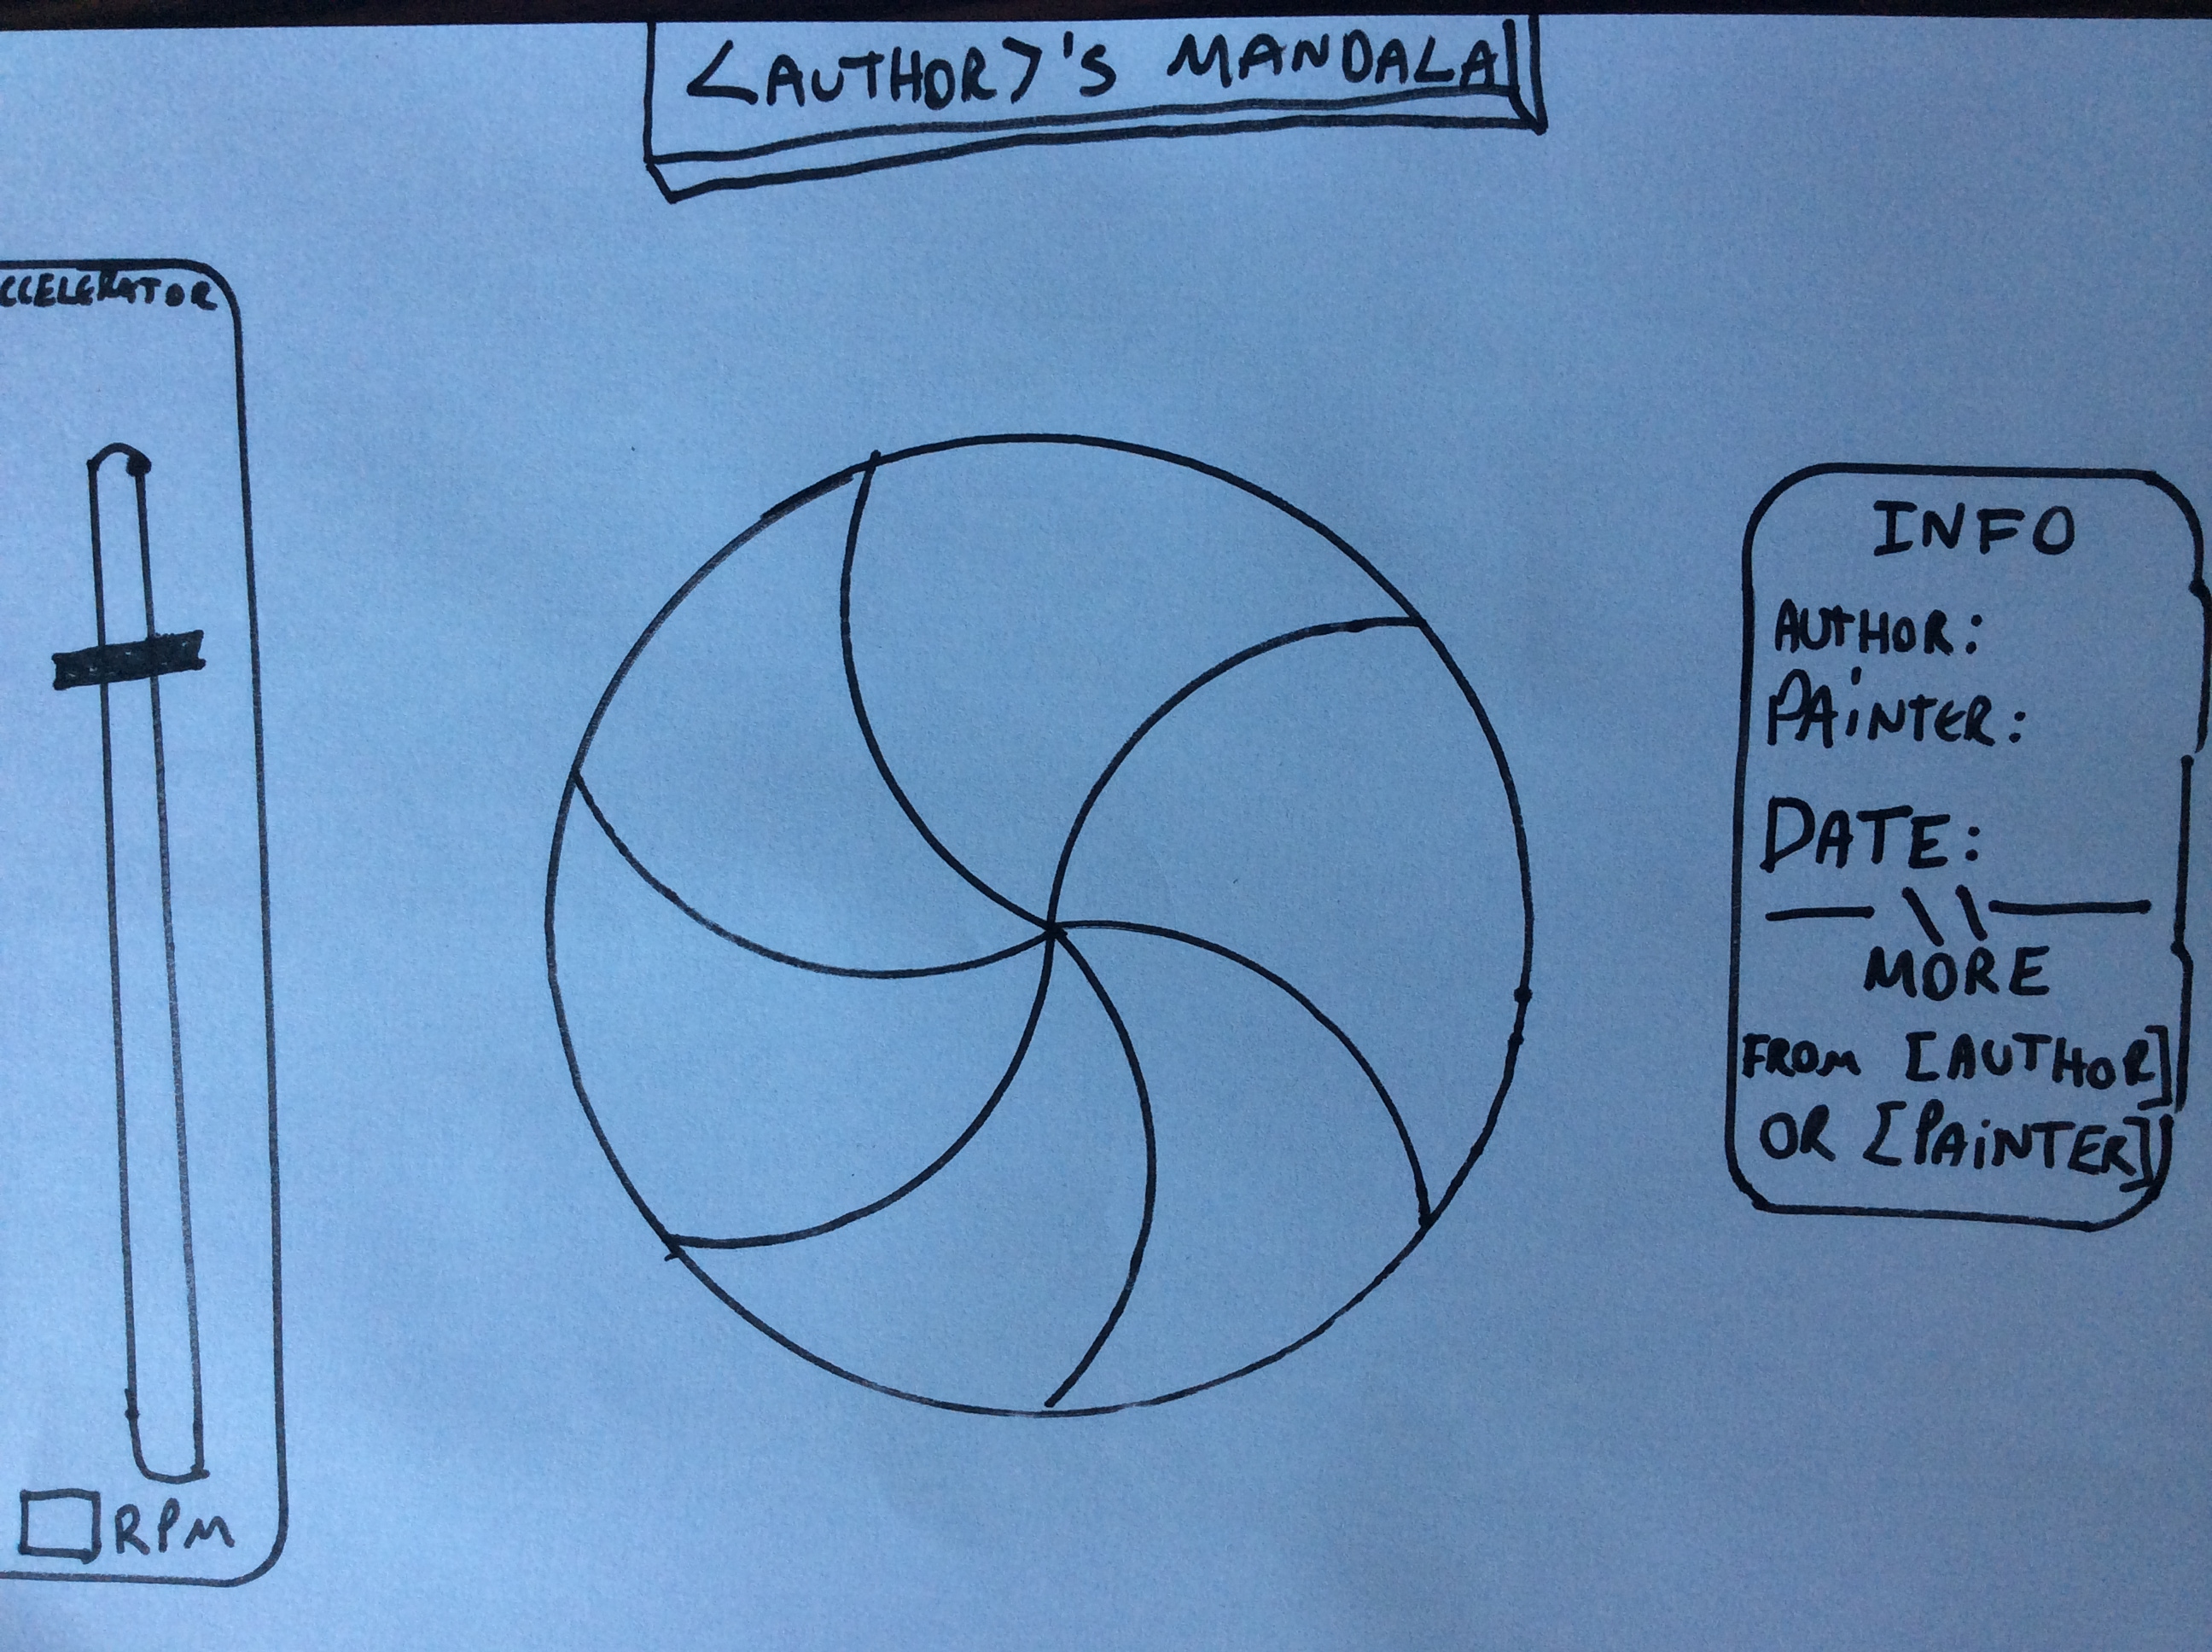 <AUTHOR>'S MANDALA
CCELERATOR
RPM
INFO
AUTHOR:
PAiNTER:
DATE:
MORE
FROM [AUTHOR]
OR [PAiNTER]